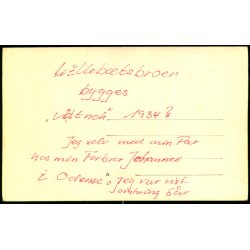 Lillebæltsbroen
bygges
1934 ?
Jeg selv med min Far
hos min Farbror Johannes
i Odense. Jeg var vist
omkring 6 år